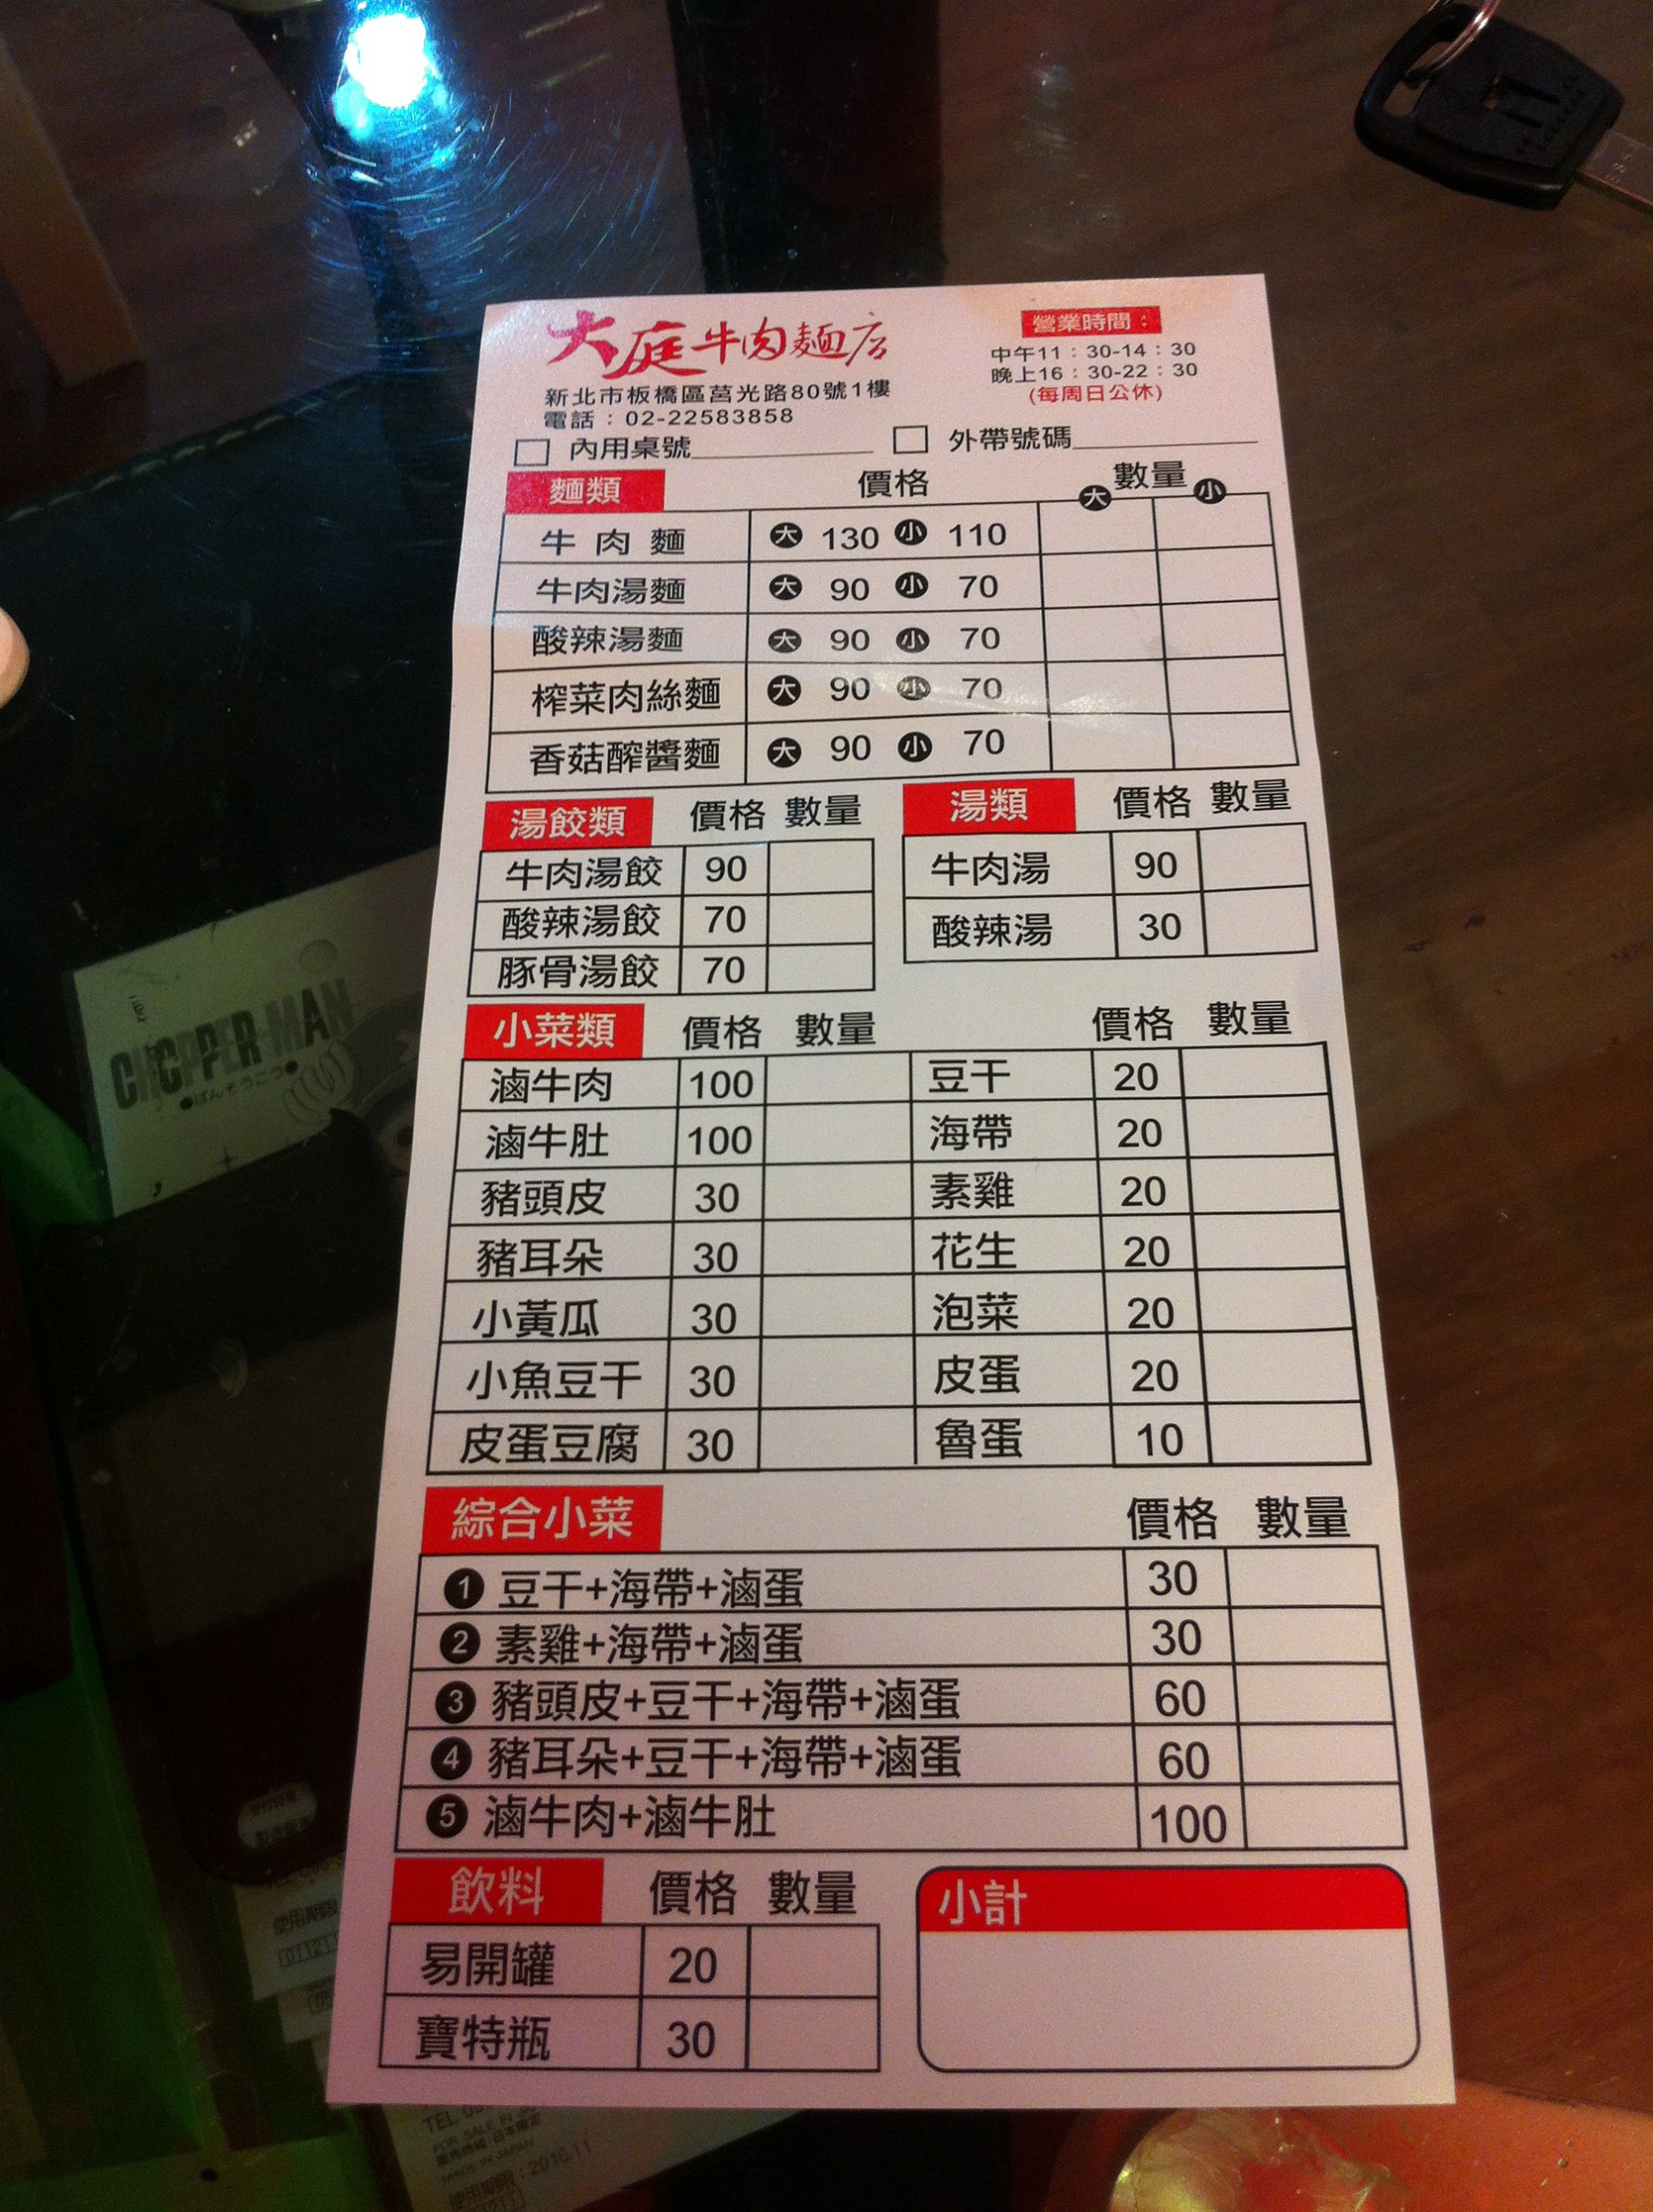 大庭牛肉麵店
新北市板橋區莒光路80號1樓
電話：02-22583858
營業時間：
中午11：30-14：30
晚上16：30-22：30
(每周日公休)
內用桌號 外帶號碼
麵類 價格 數量
大 小
牛肉麵 大 130 小 110
牛肉湯麵 大 90 小 70
酸辣湯麵 大 90 小 70
榨菜肉絲麵 大 90 小 70
香菇醡醬麵 大 90 小 70
湯餃類 價格 數量
牛肉湯餃 90
酸辣湯餃 70
豚骨湯餃 70
湯類 價格 數量
牛肉湯 90
酸辣湯 30
小菜類 價格 數量 價格 數量
滷牛肉 100 豆干 20
滷牛肚 100 海帶 20
豬頭皮 30 素雞 20
豬耳朵 30 花生 20
小黃瓜 30 泡菜 20
小魚豆干 30 皮蛋 20
皮蛋豆腐 30 魯蛋 10
綜合小菜 價格 數量
1 豆干+海帶+滷蛋 30
2 素雞+海帶+滷蛋 30
3 豬頭皮+豆干+海帶+滷蛋 60
4 豬耳朵+豆干+海帶+滷蛋 60
5 滷牛肉+滷牛肚 100
飲料 價格 數量
易開罐 20
寶特瓶 30
小計
CHOPPER-MAN
●ばんそうこう●
使用期限
FOR SALE IN
MADE IN JAPAN
2016.11